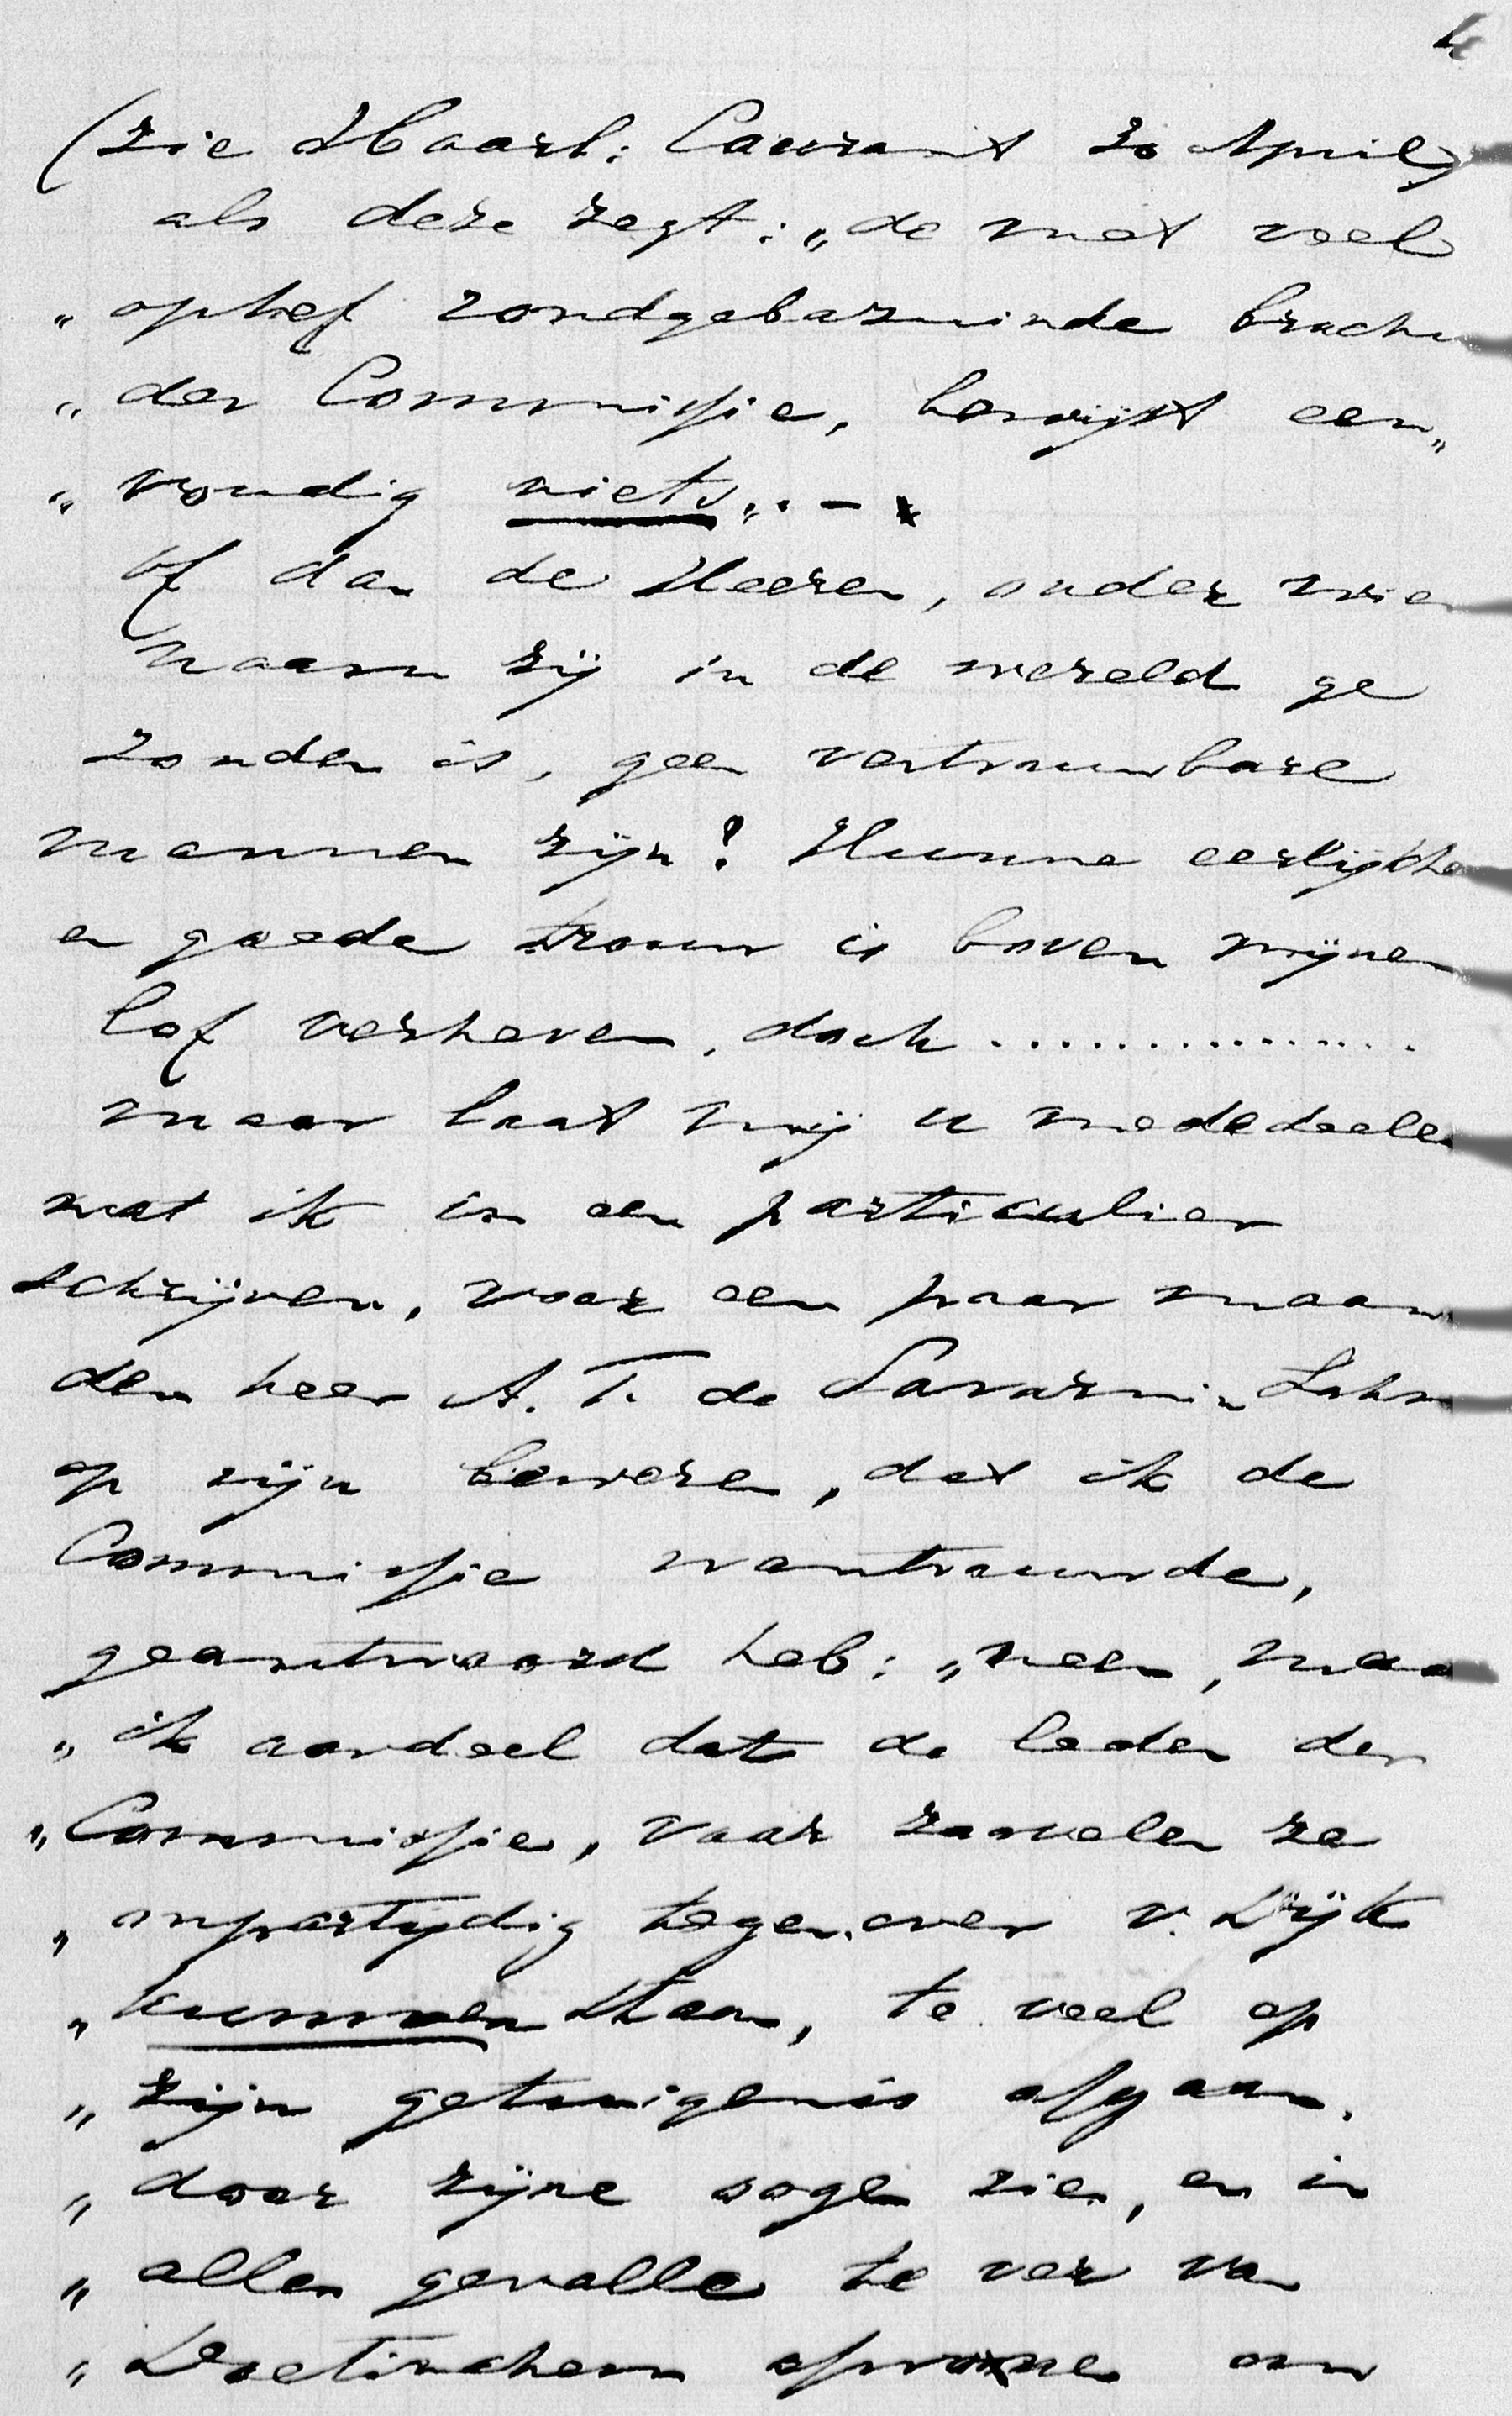 4
(zie Haarl: Courant 20 April)
als deze zegt: „de met veel
„ ophef rondgebazuinde
„ der Commissie, bewijst een„
„ voudig niets„. -
of dan de Heeren, onder wier
naam zij in de wereld ge
zonden is, geen vertrouwbare
mannen zijn? Hunne
en goede trouw is boven mijnen
lof verheven, doch ...............
maar laat mij u mededeelen
wat ik in een particulier
schrijven, voor een paar maan
den heer A. T. de Savarnin
op zijn beweren, dat ik de
Commissie wantrouwde,
geantwoord heb: „neen, maar
„ ik oordeel dat de leden der
„ Commissie, voor zoovelen ze
„ onpartijdig tegenover v. Dijk
„ kunnen staan, te veel op
„ zijn getuigenis afgaan,
„ door zijne oogen zien, en in
„ allen gevalle te ver van
„ Doetinchem afwonen om